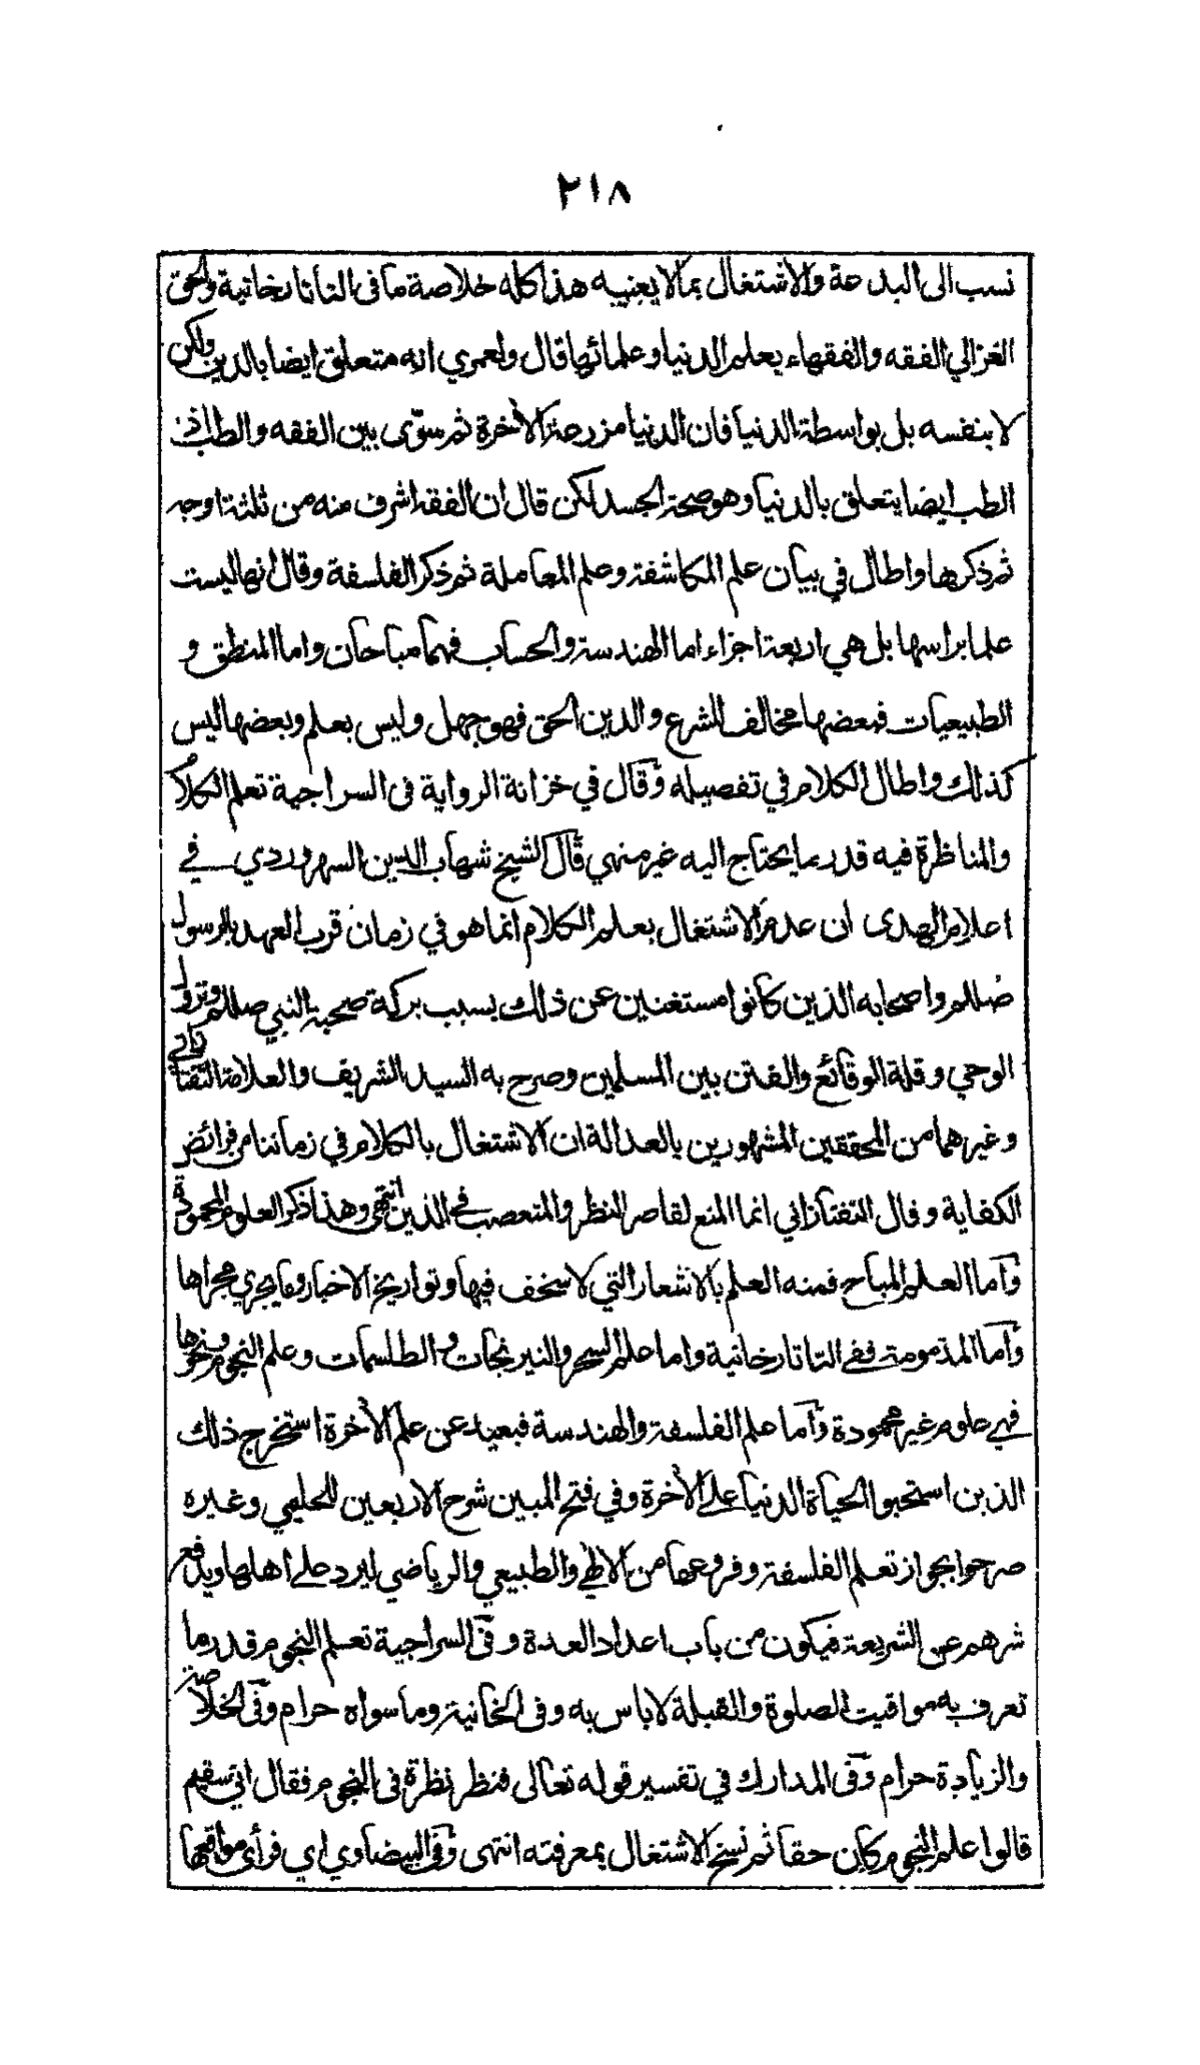 ٢١٨
نسب الى البدعة والاشتغال بما لا يعنيه هذا كله خلاصة ما فى التاتارخانية والحق
الغزالي الفقه والفقهاء بعلم الدنيا وعلمائها قال ولعمري انه متعلق ايضا بالدين ولكن
لا بنفسه بل بواسطة الدنيا فان الدنيا مزرعة الاخرة ثم سوّى بين الفقه والطب اذ
الطب ايضا يتعلق بالدنيا وهو صحة الجسد لكن قال ان الفقه اشرف منه من ثلثة اوجه
ثم ذكرها واطال في بيان علم المكاشفة وعلم المعاملة ثم ذكر الفلسفة وقال انها ليست
علما براسها بل هي اربعة اجزاء اما الهندسة والحساب فهما مباحان واما المنطق و
الطبيعيات فبعضها مخالف للشرع والدين الحق فهو جهل وليس بعلم وبعضها ليس
كذلك واطال الكلام في تفصيله وقال في خزانة الرواية فى السراجية تعلم الكلام
والمناظرة فيه قدر ما يحتاج اليه غير منهي قال الشيخ شهاب الدين السهروردي في
اعلام الهدى ان عدم الاشتغال بعلم الكلام انما هو في زمان قرب العهد بالرسول
صللم واصحابه الذين كانوا مستغنين عن ذلك بسبب بركة صحبة النبي صللم ونزول
الوحي وقلة الوقائع والفتن بين المسلمين وصرح به السيد الشريف والعلامة التفتازاني
وغيرهما من المحققين المشهورين بالعدالة ان الاشتغال بالكلام في زماننا من فرائض
الكفاية وقال التفتازاني انما المنع لقاصر النظر والمتعصب في الدين انتهى وهذا ذكر العلوم المحمودة
وأما العلم المباح فمنه العلم بالاشعار التي لا سخف فيها وتواريخ الاخبار وما يجري مجراها
وأما المذمومة ففي التاتارخانية واما علم السحر والنيرنجات والطلسمات وعلم النجوم ونحوها
فهي علوم غير محمودة وأما علم الفلسفة والهندسة فبعيد عن علم الأخرة استخرج ذلك
الذين استحبوا الحياة الدنيا على الأخرة وفي فتح المبين شرح الاربعين للحليمي وغيره
صرحوا بجواز تعلم الفلسفة وفروعها من الالهي والطبيعي والرياضي ليرد على اهلها ويدفع
شرهم عن الشريعة فيكون من باب اعداد العدة وفي السراجية تعلم النجوم قدر ما
تعرف به مواقيت الصلوة والقبلة لا باس به وفى الخانية وما سواه حرام وفي الخلاصة
والزيادة حرام وفى المدارك في تفسير قوله تعالى فنظر نظرة فى النجوم فقال اني سقيم
قالوا علم النجوم كان حقا ثم نسخ الاشتغال بمعرفته انتهى وفي البيضاوي اي فرأى مواقعها